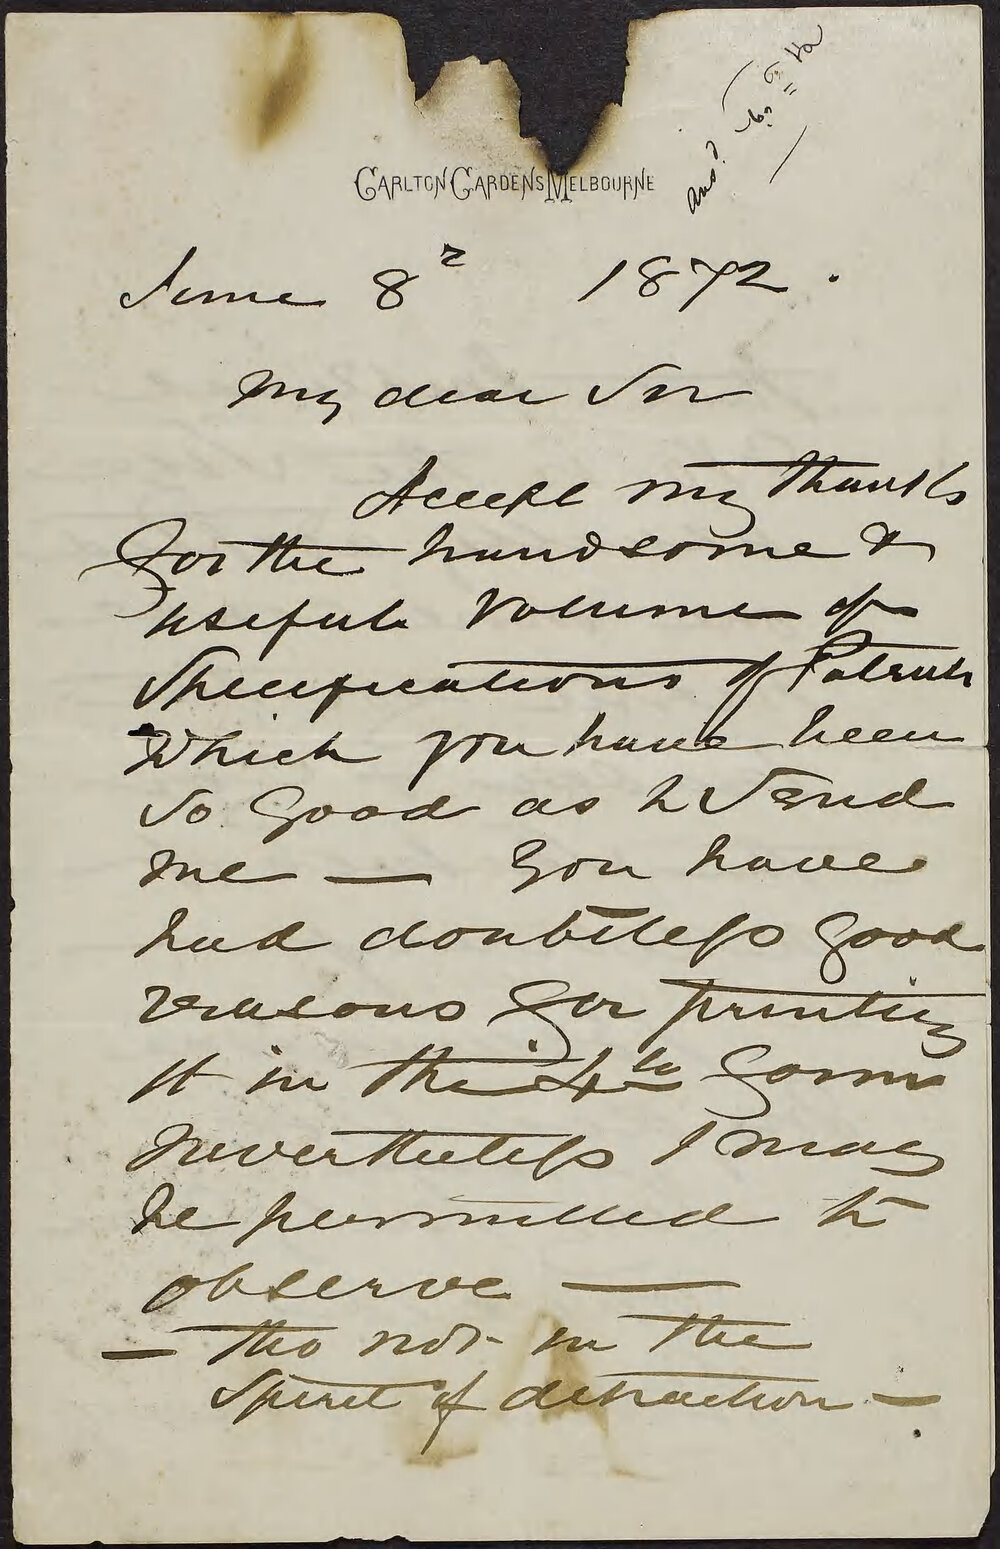 CARLTON GARDENS MELBOURNE
ans.d
June 8 1872.
My dear Sir
Accept my thanks
for the handsome &
useful volume of
Specifications of Patents
Which you have been
so good as to Send
me — You have
had doubtless good
reasons for printing
it in the 4to form
nevertheless I may
be permitted to
observe —
— tho not in the
Spirit of detraction —